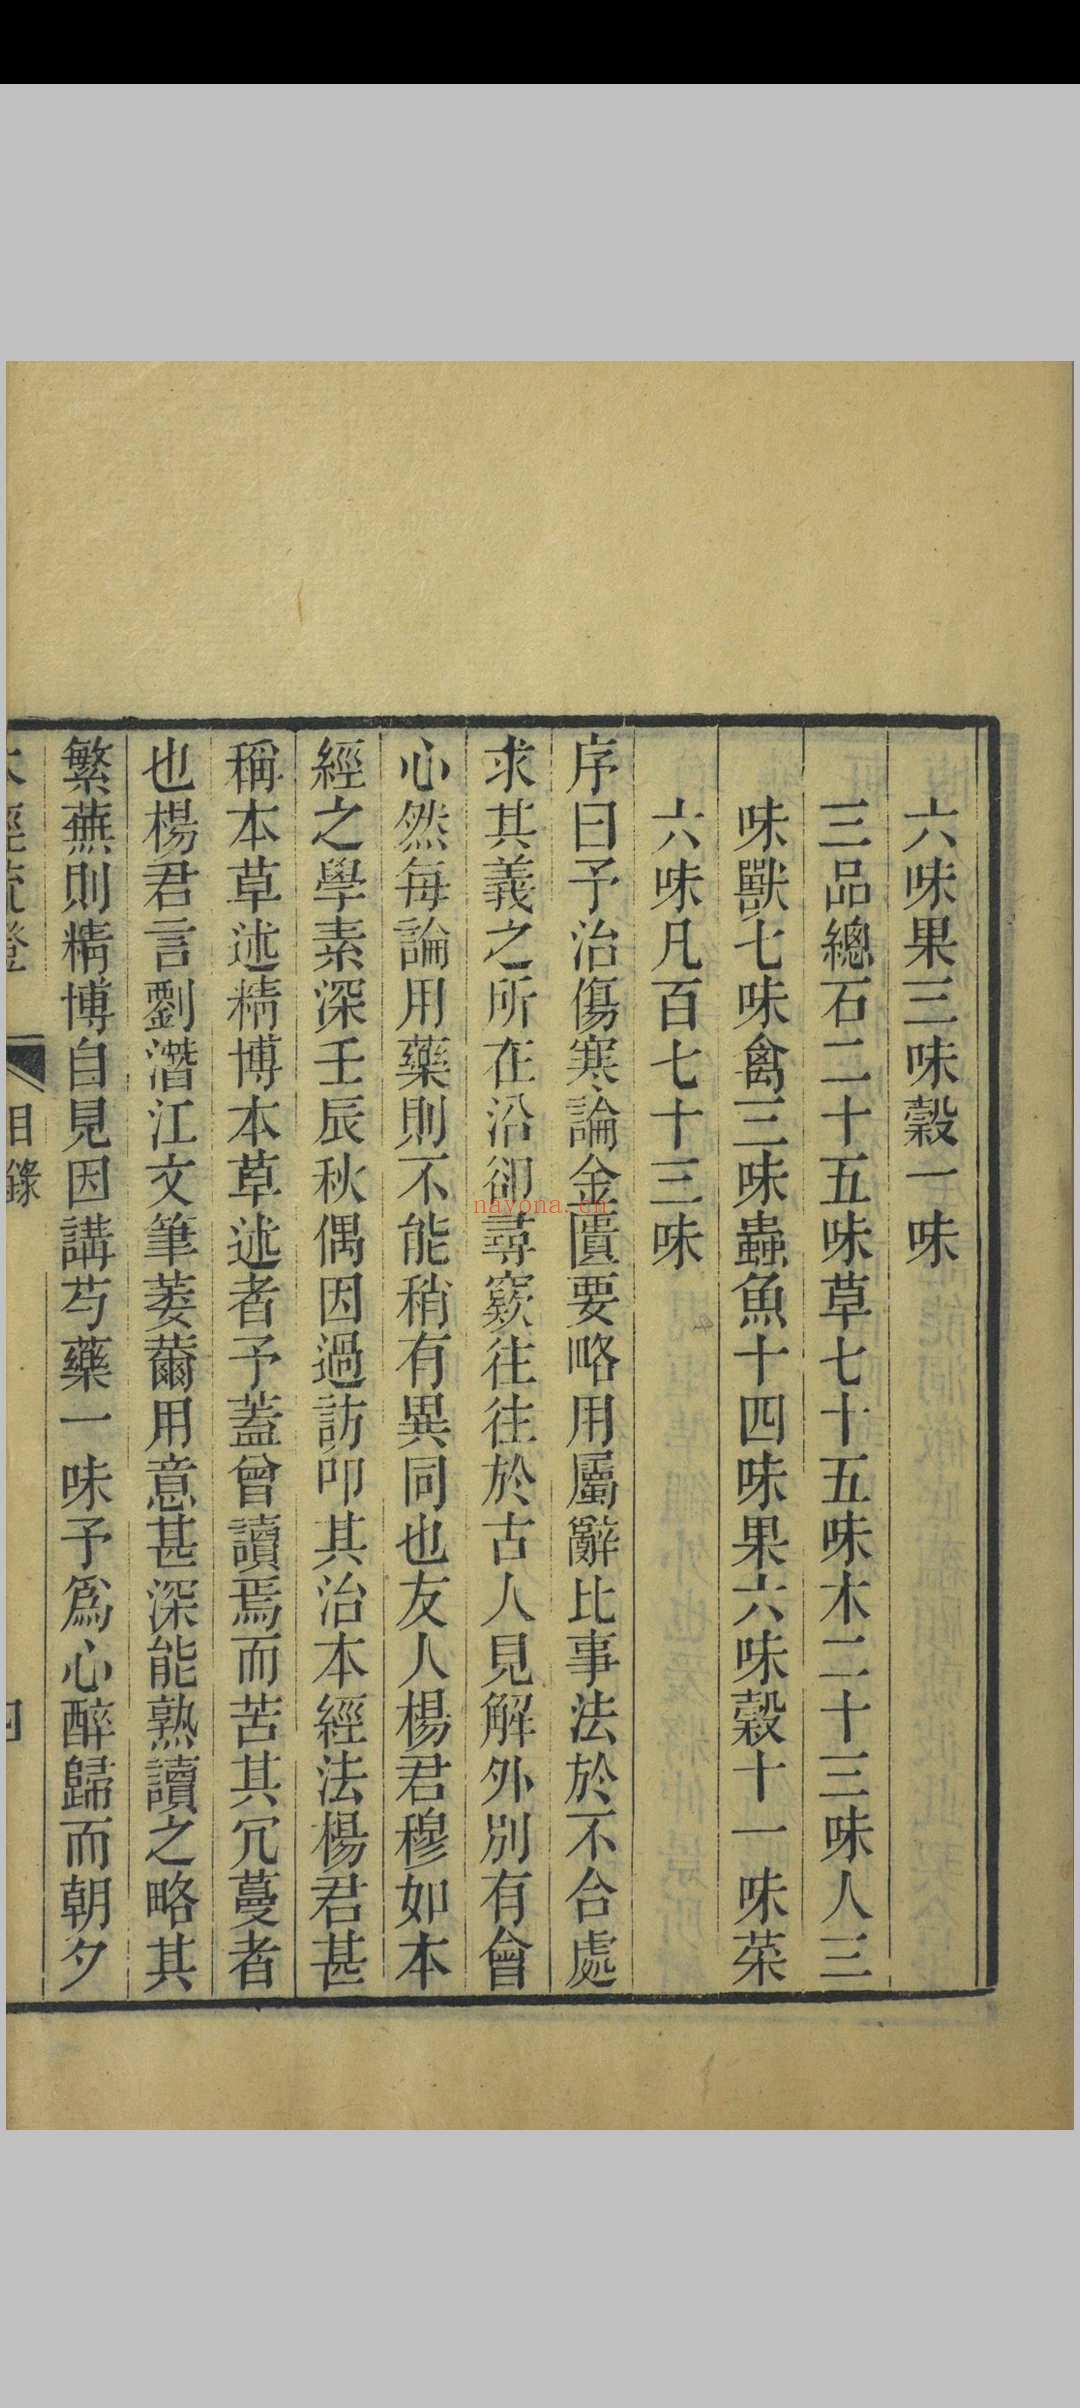 六味果三味穀一味
三品總石二十五味草七十五味木二十三味人三
味獸七味禽三味蟲魚十四味果六味穀十一味菜
六味凡百七十三味
序曰予治傷寒論金匱要略用屬辭比事法於不合處
求其義之所在沿卻尋窾往往於古人見解外別有會
心然每論用藥則不能稍有異同也友人楊君穆如本
經之學素深壬辰秋偶因過訪叩其治本經法楊君甚
稱本草述精博本草述者予蓋曾讀焉而苦其冗蔓者
也楊君言劉潛江文筆萎薾用意甚深能熟讀之略其
繁蕪則精博自見因講芍藥一味予為心醉歸而朝夕
本經疏證 目錄 四
navona.cn